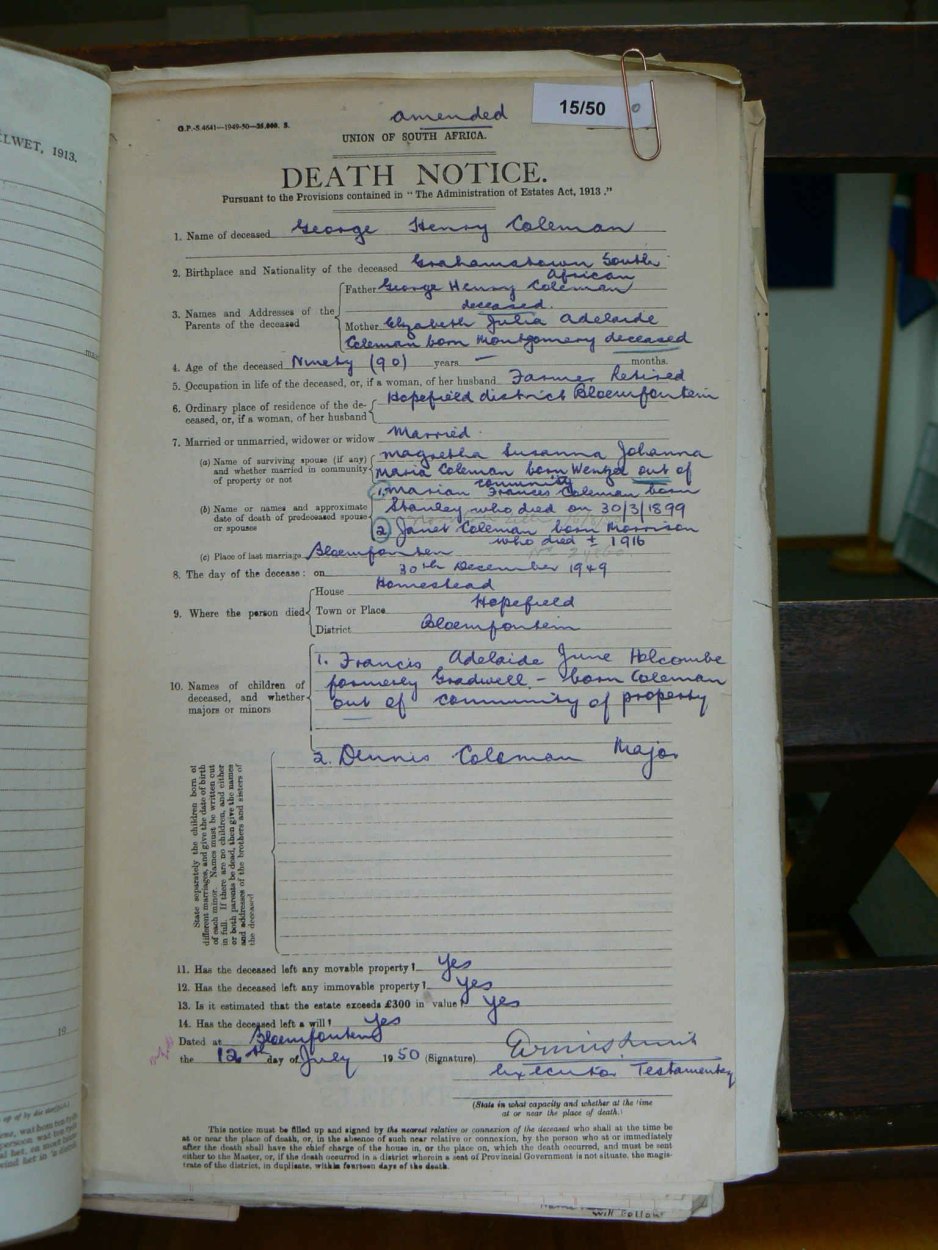 ELWET, 1913.
15/50
amended
G.P.-S.4641—1949-50—35,000. S.
UNION OF SOUTH AFRICA.
DEATH NOTICE.
Pursuant to the Provisions contained in "The Administration of Estates Act, 1913."
1. Name of deceased George Henry Coleman
2. Birthplace and Nationality of the deceased Grahamstown South African
3. Names and Addresses of the Parents of the deceased
Father George Henry Coleman
deceased.
Mother Elizabeth Julia Adelaide
Coleman born Montgomery deceased
4. Age of the deceased Ninety (90) years — months.
5. Occupation in life of the deceased, or, if a woman, of her husband Farmer Retired
6. Ordinary place of residence of the deceased, or, if a woman, of her husband
Hopefield district Bloemfontein
7. Married or unmarried, widower or widow Married.
(a) Name of surviving spouse (if any) and whether married in community of property or not
Magretha Susanna Johanna
Maria Coleman born Wentzel out of
community
(b) Name or names and approximate date of death of predeceased spouse or spouses
1. Marian Frances Coleman born
Stanley who died on 30/3/1899
2. Janet Coleman born Morrison
who died ± 1916
(c) Place of last marriage Bloemfontein
8. The day of the decease: on 30th December 1949
9. Where the person died
House Homestead
Town or Place Hopefield
District Bloemfontein
10. Names of children of deceased, and whether majors or minors
1. Francis Adelaide June Holcombe
formerly Gradwell. - born Coleman
out of community of property
2. Dennis Coleman Major
State separately the children born of
different marriages, and give the date of birth
of each minor. Names must be written out
in full. If there are no children, and either
or both parents be dead, then give the names
and addresses of the brothers and sisters of
the deceased
11. Has the deceased left any movable property? Yes
12. Has the deceased left any immovable property? Yes
13. Is it estimated that the estate exceeds £300 in value? Yes
14. Has the deceased left a will? Yes
Dated at Bloemfontein
the 12th day of July 1950 (Signature)
Executor Testamentary
(State in what capacity and whether at the time
at or near the place of death.)
This notice must be filled up and signed by the nearest relative or connexion of the deceased who shall at the time be
at or near the place of death, or, in the absence of such near relative or connexion, by the person who at or immediately
after the death shall have the chief charge of the house in, or the place on, which the death occurred, and must be sent
either to the Master, or, if the death occurred in a district wherein a seat of Provincial Government is not situate, the magis-
trate of the district, in duplicate, within fourteen days of the death.
will follow